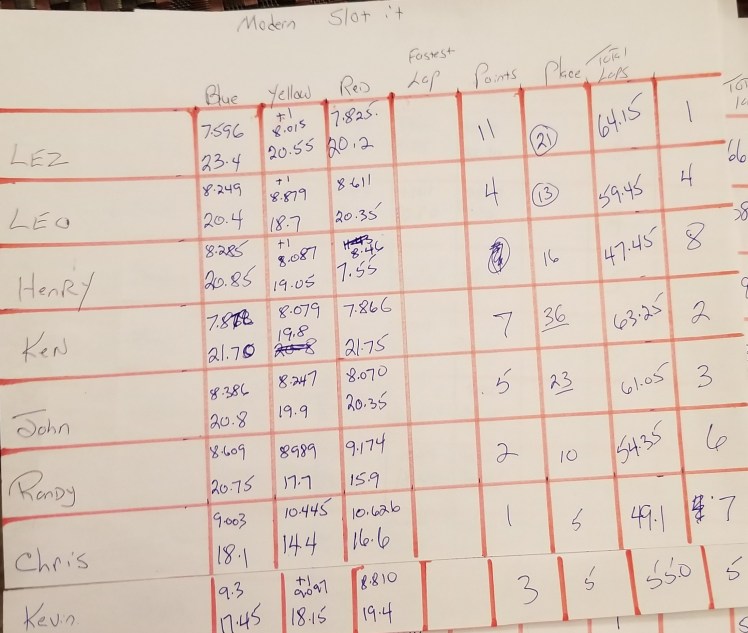 Modern Slot it
Blue Yellow Red Fastest Lap Points Place Total Laps
+1
7.596 8.015 7.825 11 21 64.15 1
LEZ 23.4 20.55 20.2
+1
8.249 8.879 8.611 4 13 59.45 4
LEO 20.4 18.7 20.35
+1
8.285 8.087 8.46 16 47.45 8
Henry 20.85 19.05 7.55
8.079 7.866 7 36 63.25 2
Ken 21.70 19.8 21.75
8.386 8.247 8.070 5 23 61.05 3
John 20.8 19.9 20.35
8.609 8989 9.174 2 10 54.35 6
Randy 20.75 17.7 15.9
9.003 10.445 10.626 1 5 49.1 7
Chris 18.1 14.4 16.6
+1
9.3 9.097 8.810 3 5 55.0 5
Kevin 17.45 18.15 19.4